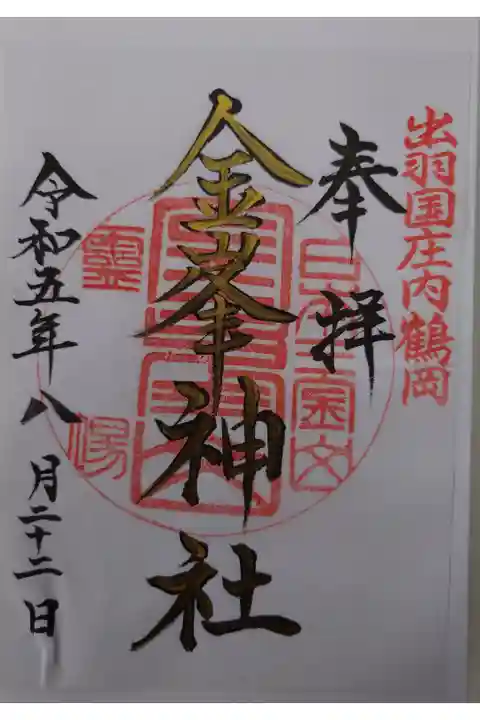 出羽国庄内鶴岡
奉拝
金峯神社
令和五年八月二十二日